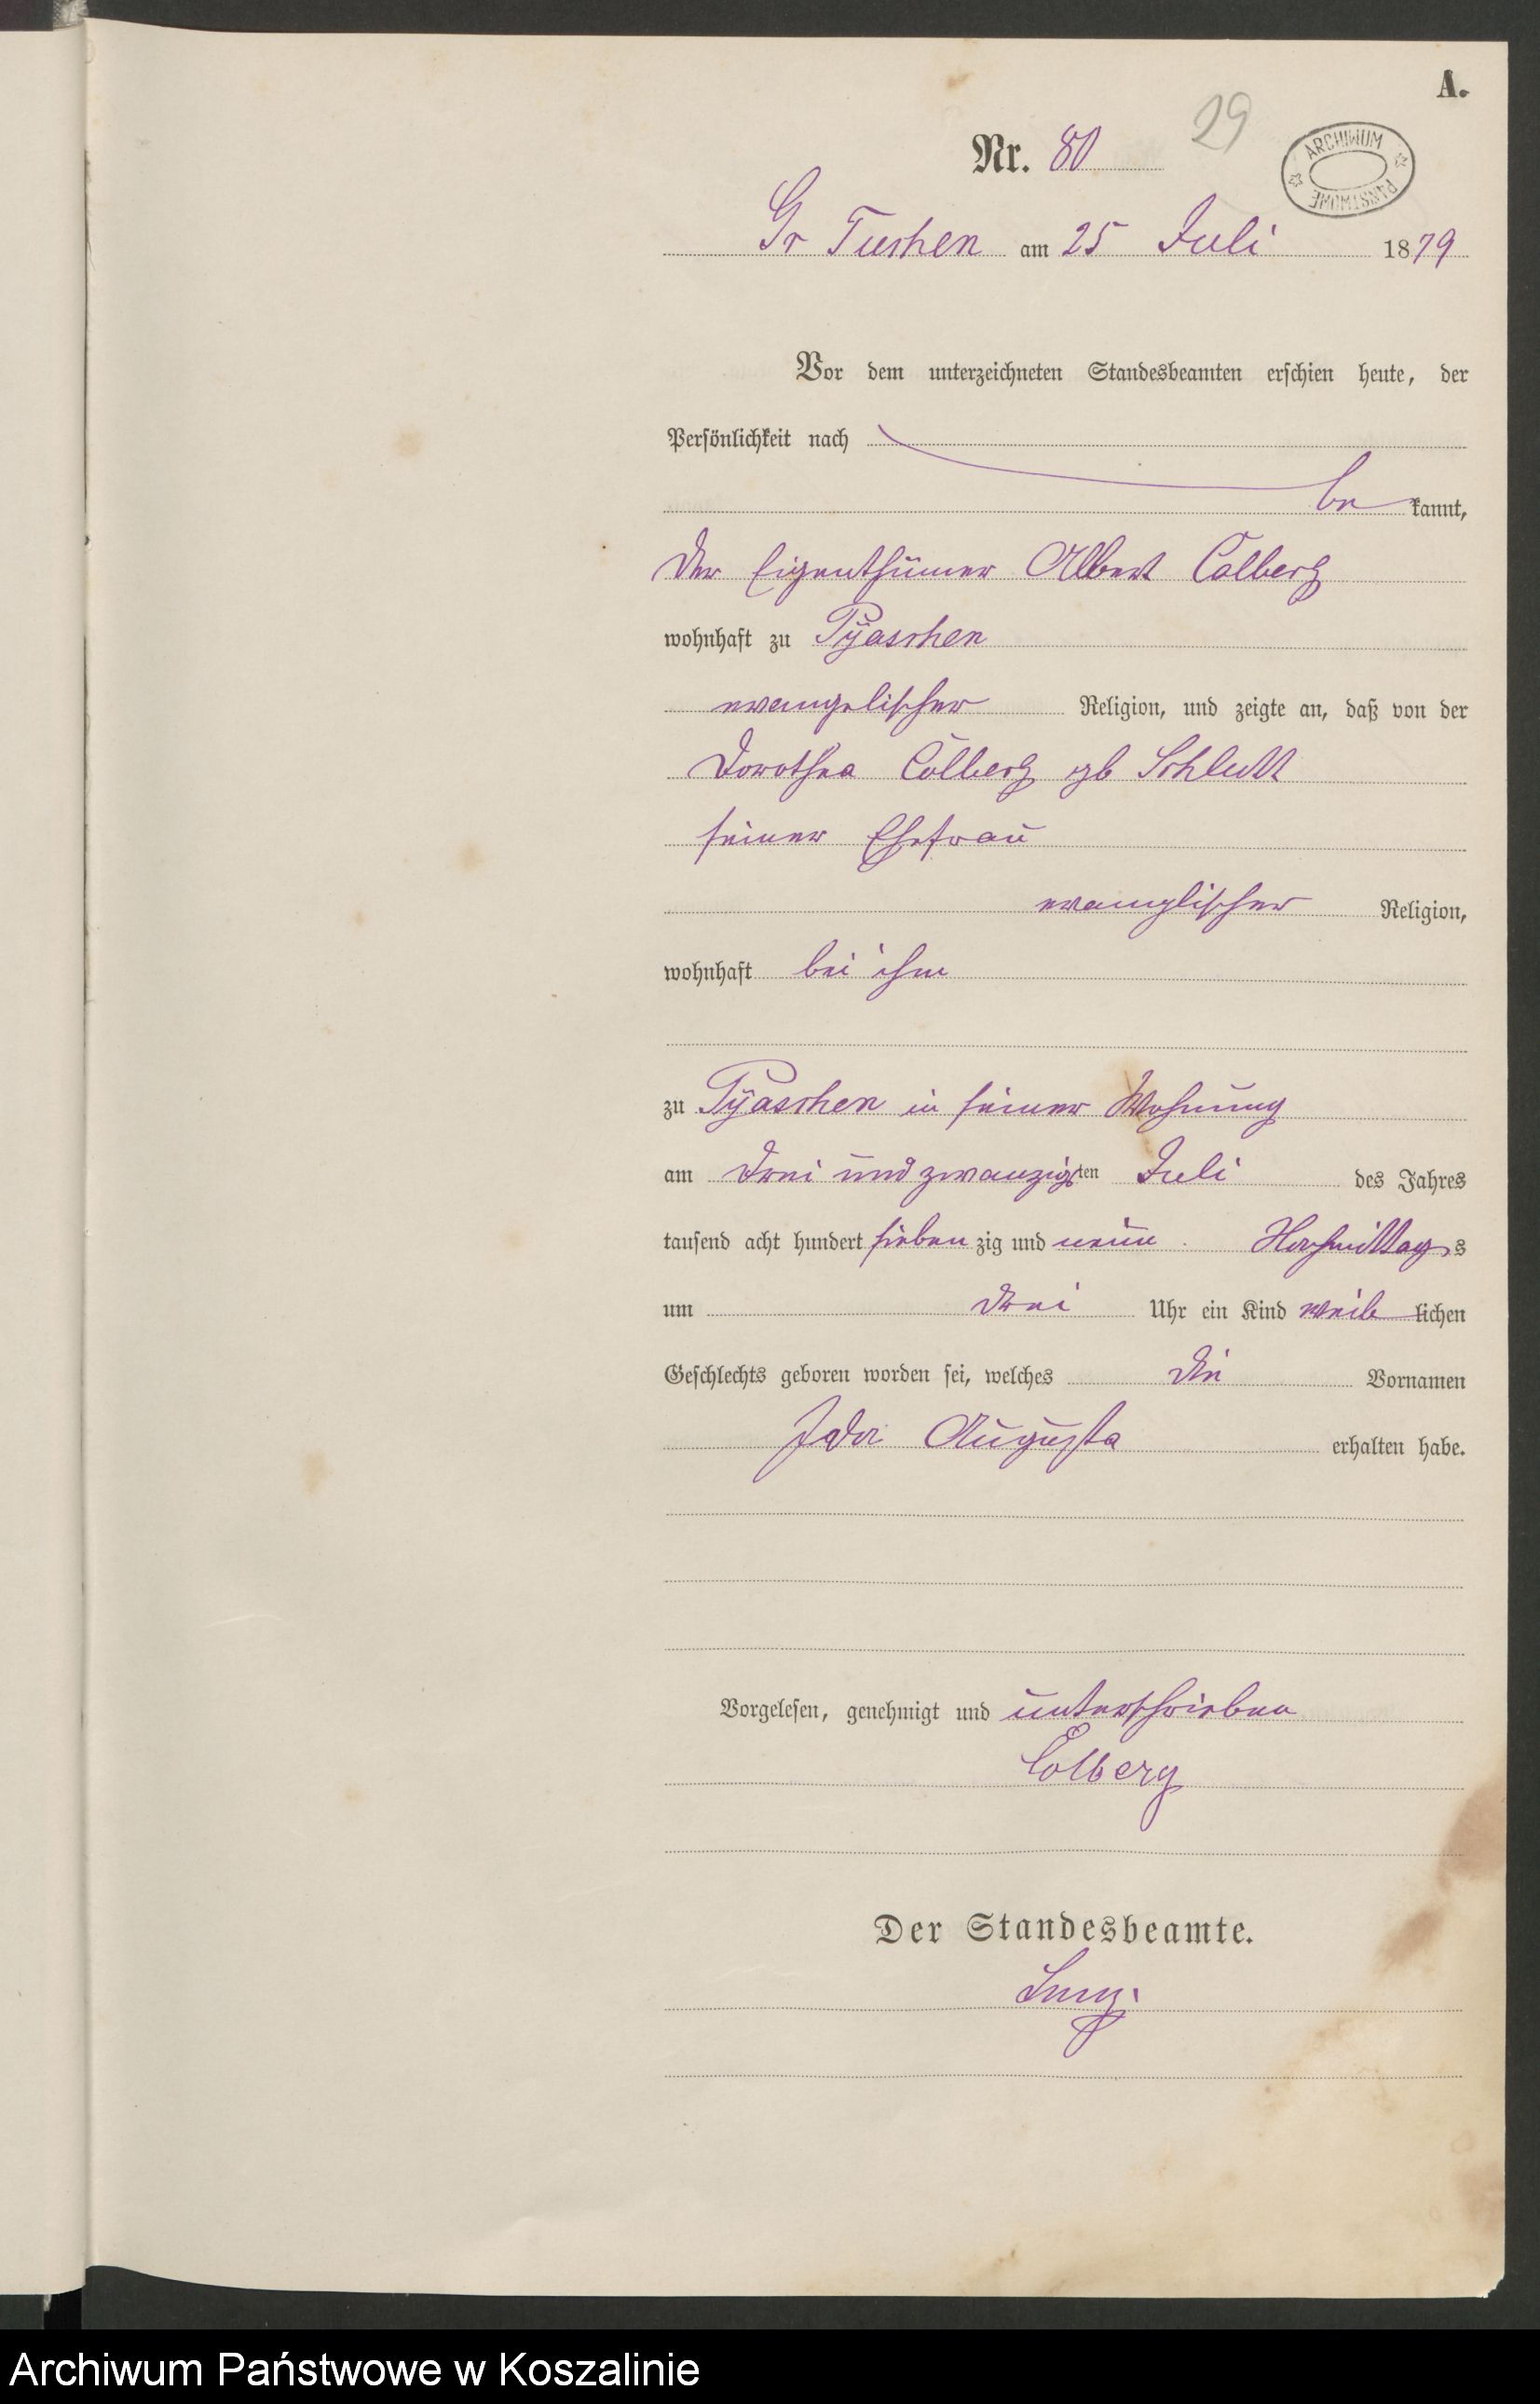 A.
29
Nr. 80
ARCHIWUM PAŃSTWOWE
Gr Tuchen am 25 Juli 1879
Vor dem unterzeichneten Standesbeamten erschien heute, der
Persönlichkeit nach
be kannt,
der Eigenthümer Albert Colberg
wohnhaft zu Pyaschen
evangelischer Religion, und zeigte an, daß von der
Dorothea Colberg gb Schlutt
seiner Ehefrau
evanglischer Religion,
wohnhaft bei ihm
zu Pyaschen in seiner Wohnung
am drei und zwanzigsten Juli des Jahres
tausend acht hundert sieben zig und neun Nachmittags
um drei Uhr ein Kind weib lichen
Geschlechts geboren worden sei, welches die Vornamen
Ida Augusta erhalten habe.
Vorgelesen, genehmigt und unterschrieben
Colberg
Der Standesbeamte.
Archiwum Państwowe w Koszalinie